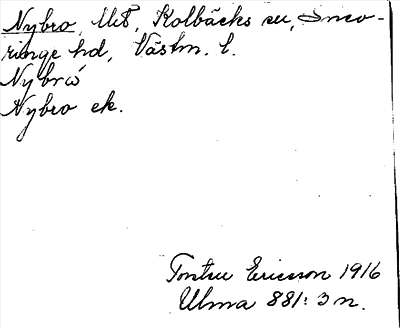 Nybro, Ut, Kolbäcks sn, Snevringe hd, Västm. l.
Nybrω̇
Nybro ek.
Torsten Ericsson 1916
Ulma 881:3 n.